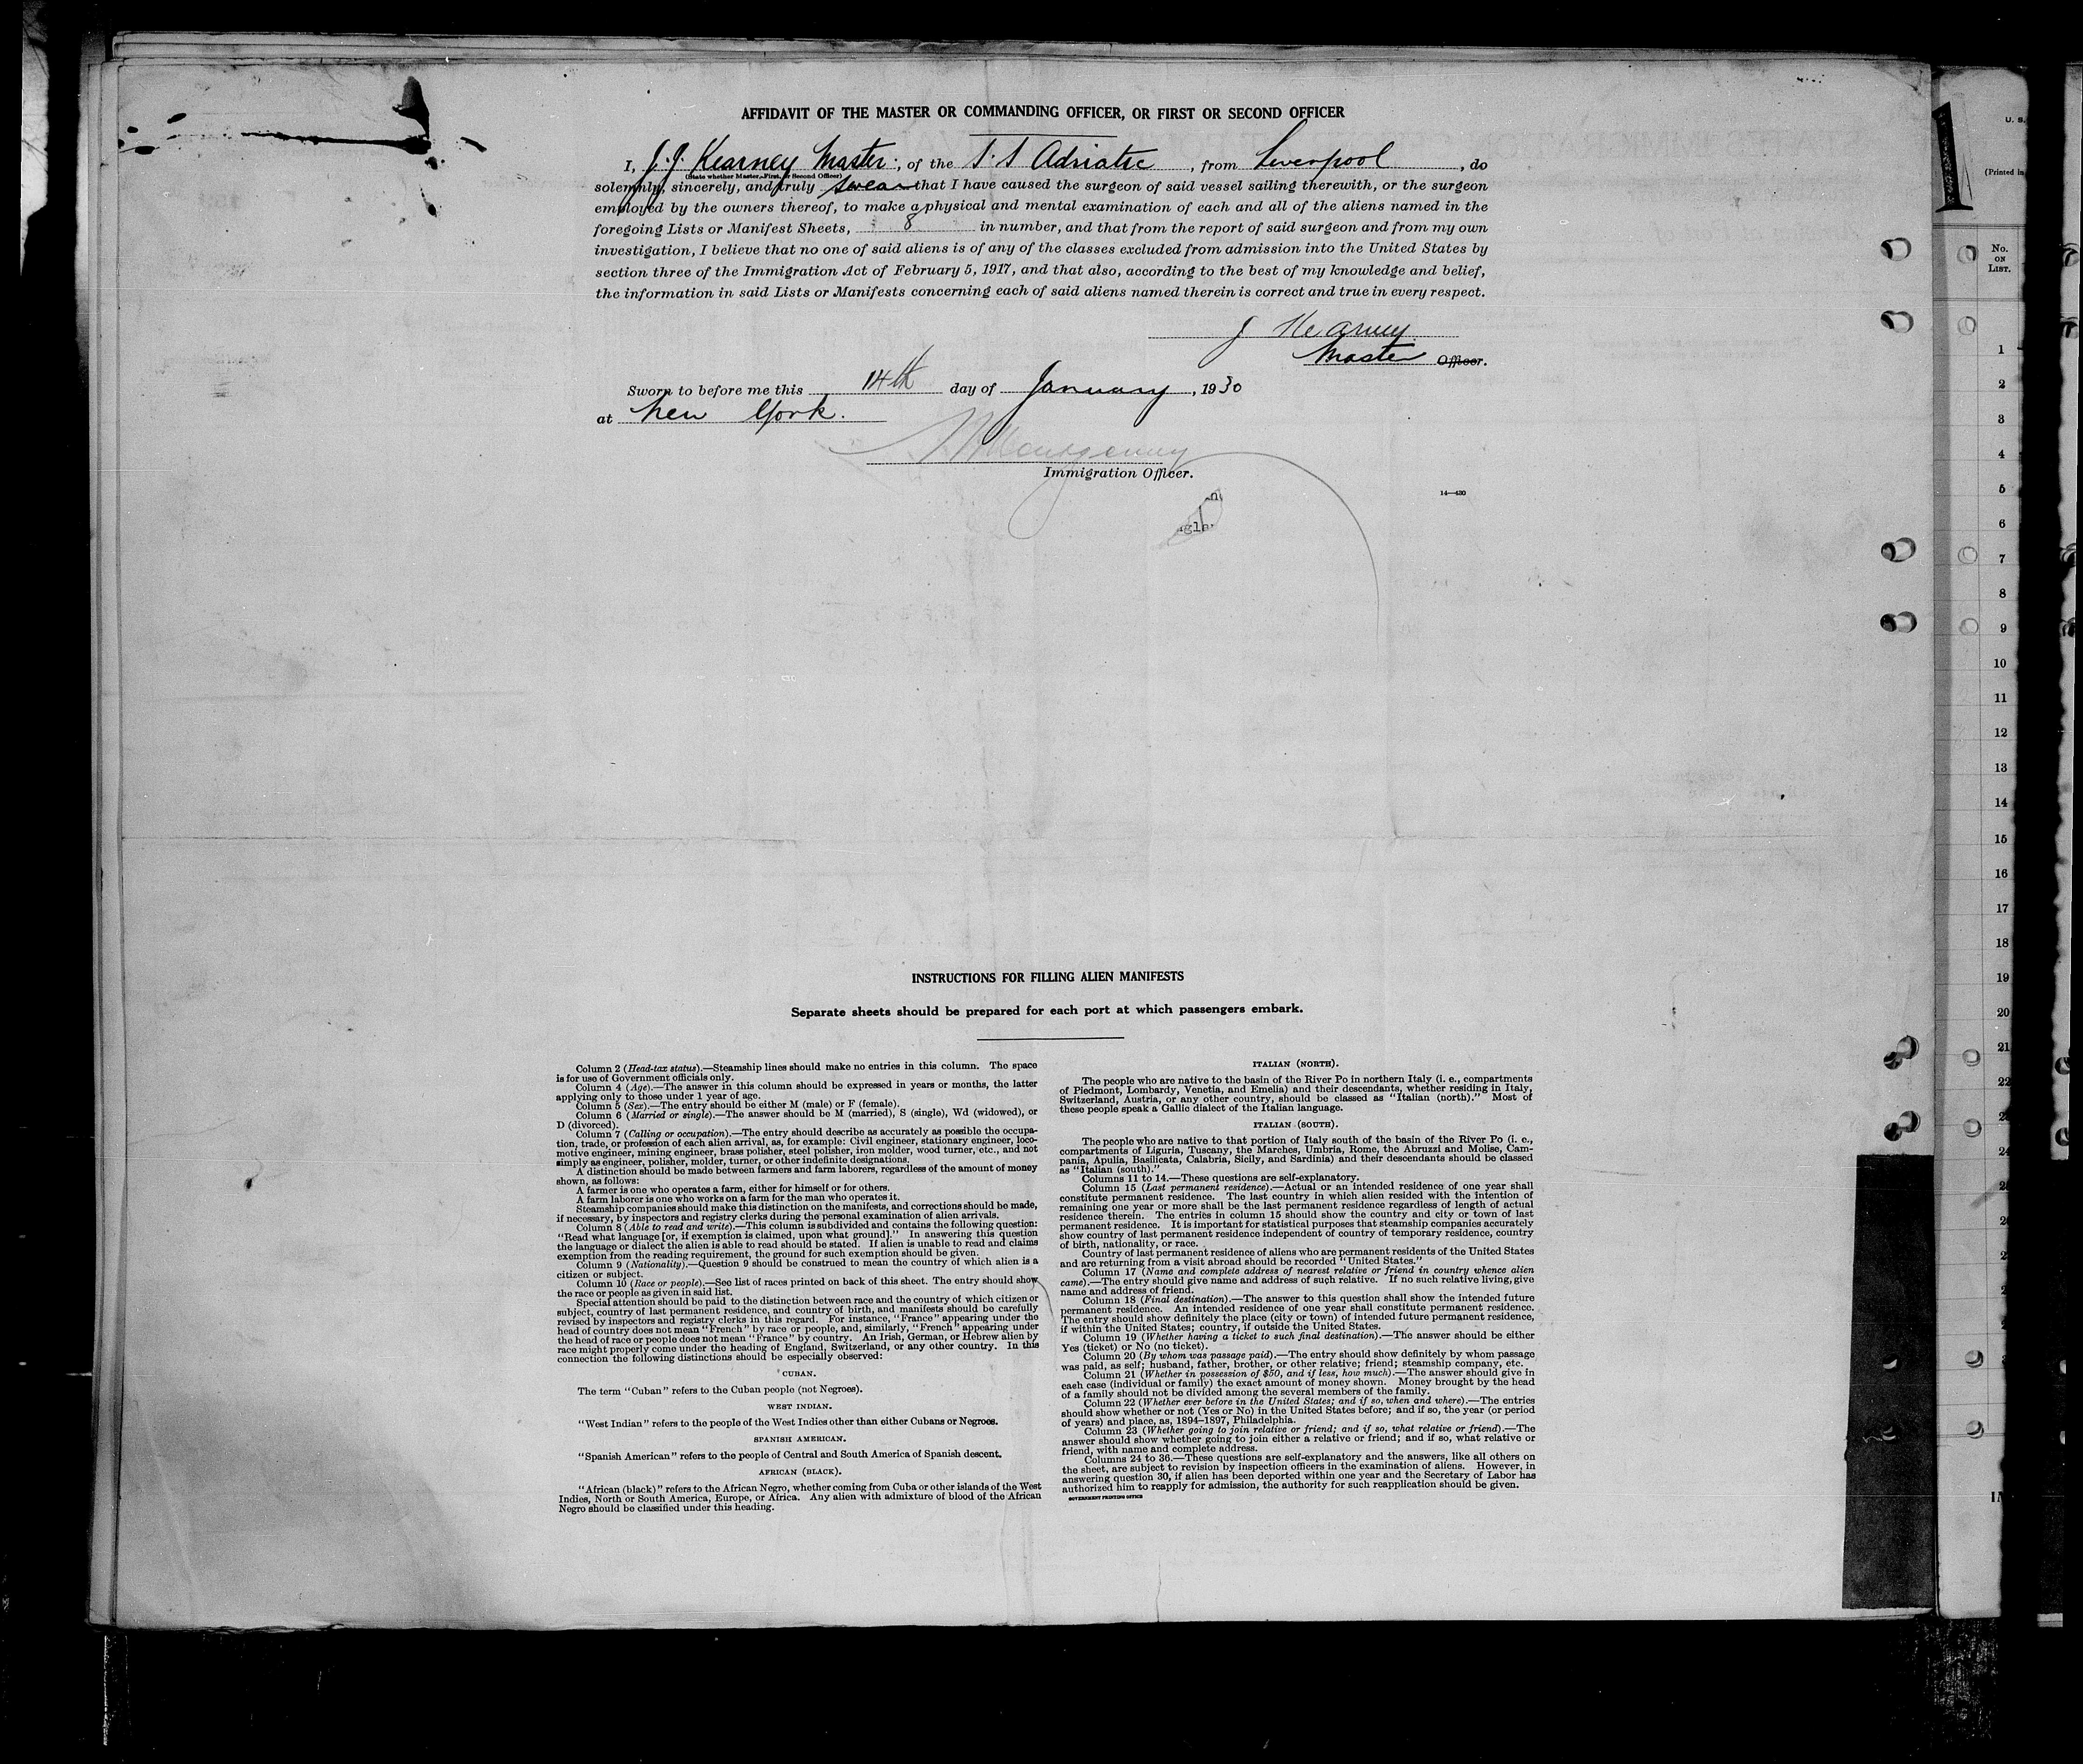 AFFIDAVIT OF THE MASTER OR COMMANDING OFFICER, OR FIRST OR SECOND OFFICER
I, J. J. Kearney Master, of the S.S Adriatic, from Liverpool, do
(State whether Master, First, or Second Officer)
solemnly, sincerely, and truly swear that I have caused the surgeon of said vessel sailing therewith, or the surgeon
employed by the owners thereof, to make a physical and mental examination of each and all of the aliens named in the
foregoing Lists or Manifest Sheets, 8 in number, and that from the report of said surgeon and from my own
investigation, I believe that no one of said aliens is of any of the classes excluded from admission into the United States by
section three of the Immigration Act of February 5, 1917, and that also, according to the best of my knowledge and belief,
the information in said Lists or Manifests concerning each of said aliens named therein is correct and true in every respect.
J Kearney
Master Officer.
Sworn to before me this 14th day of January, 1930
at New York.
Montgomery
Immigration Officer.
14—430
INSTRUCTIONS FOR FILLING ALIEN MANIFESTS
Separate sheets should be prepared for each port at which passengers embark.
Column 2 (Head-tax status).—Steamship lines should make no entries in this column. The space
is for use of Government officials only.
Column 4 (Age).—The answer in this column should be expressed in years or months, the latter
applying only to those under 1 year of age.
Column 5 (Sex).—The entry should be either M (male) or F (female).
Column 6 (Married or single).—The answer should be M (married), S (single), Wd (widowed), or
D (divorced).
Column 7 (Calling or occupation).—The entry should describe as accurately as possible the occupa-
tion, trade, or profession of each alien arrival, as, for example: Civil engineer, stationary engineer, loco-
motive engineer, mining engineer, brass polisher, steel polisher, iron molder, wood turner, etc., and not
simply as engineer, polisher, molder, turner, or other indefinite designations.
A distinction should be made between farmers and farm laborers, regardless of the amount of money
shown, as follows:
A farmer is one who operates a farm, either for himself or for others.
A farm laborer is one who works on a farm for the man who operates it.
Steamship companies should make this distinction on the manifests, and corrections should be made,
if necessary, by inspectors and registry clerks during the personal examination of alien arrivals.
Column 8 (Able to read and write).—This column is subdivided and contains the following question:
"Read what language [or, if exemption is claimed, upon what ground]." In answering this question
the language or dialect the alien is able to read should be stated. If alien is unable to read and claims
exemption from the reading requirement, the ground for such exemption should be given.
Column 9 (Nationality).—Question 9 should be construed to mean the country of which alien is a
citizen or subject.
Column 10 (Race or people).—See list of races printed on back of this sheet. The entry should show
the race or people as given in said list.
Special attention should be paid to the distinction between race and the country of which citizen or
subject, country of last permanent residence, and country of birth, and manifests should be carefully
revised by inspectors and registry clerks in this regard. For instance, "France" appearing under the
head of country does not mean "French" by race or people, and, similarly, "French" appearing under
the head of race or people does not mean "France" by country. An Irish, German, or Hebrew alien by
race might properly come under the heading of England, Switzerland, or any other country. In this
connection the following distinctions should be especially observed:
CUBAN.
The term "Cuban" refers to the Cuban people (not Negroes).
WEST INDIAN.
"West Indian" refers to the people of the West Indies other than either Cubans or Negroes.
SPANISH AMERICAN.
"Spanish American" refers to the people of Central and South America of Spanish descent.
AFRICAN (BLACK).
"African (black)" refers to the African Negro, whether coming from Cuba or other islands of the West
Indies, North or South America, Europe, or Africa. Any alien with admixture of blood of the African
Negro should be classified under this heading.
ITALIAN (NORTH).
The people who are native to the basin of the River Po in northern Italy (i. e., compartments
of Piedmont, Lombardy, Venetia, and Emelia) and their descendants, whether residing in Italy,
Switzerland, Austria, or any other country, should be classed as "Italian (north)." Most of
these people speak a Gallic dialect of the Italian language.
ITALIAN (SOUTH).
The people who are native to that portion of Italy south of the basin of the River Po (i. e.,
compartments of Liguria, Tuscany, the Marches, Umbria, Rome, the Abruzzi and Molise, Cam-
pania, Apulia, Basilicata, Calabria, Sicily, and Sardinia) and their descendants should be classed
as "Italian (south)."
Columns 11 to 14.—These questions are self-explanatory.
Column 15 (Last permanent residence).—Actual or an intended residence of one year shall
constitute permanent residence. The last country in which alien resided with the intention of
remaining one year or more shall be the last permanent residence regardless of length of actual
residence therein. The entries in column 15 should show the country and city or town of last
permanent residence. It is important for statistical purposes that steamship companies accurately
show country of last permanent residence independent of country of temporary residence, country
of birth, nationality, or race.
Country of last permanent residence of aliens who are permanent residents of the United States
and are returning from a visit abroad should be recorded "United States."
Column 17 (Name and complete address of nearest relative or friend in country whence alien
came).—The entry should give name and address of such relative. If no such relative living, give
name and address of friend.
Column 18 (Final destination).—The answer to this question shall show the intended future
permanent residence. An intended residence of one year shall constitute permanent residence.
The entry should show definitely the place (city or town) of intended future permanent residence,
if within the United States; country, if outside the United States.
Column 19 (Whether having a ticket to such final destination).—The answer should be either
Yes (ticket) or No (no ticket).
Column 20 (By whom was passage paid).—The entry should show definitely by whom passage
was paid, as self; husband, father, brother, or other relative; friend; steamship company, etc.
Column 21 (Whether in possession of $50, and if less, how much).—The answer should give in
each case (individual or family) the exact amount of money shown. Money brought by the head
of a family should not be divided among the several members of the family.
Column 22 (Whether ever before in the United States; and if so, when and where).—The entries
should show whether or not (Yes or No) in the United States before; and if so, the year (or period
of years) and place, as, 1894–1897, Philadelphia.
Column 23 (Whether going to join relative or friend; and if so, what relative or friend).—The
answer should show whether going to join either a relative or friend; and if so, what relative or
friend, with name and complete address.
Columns 24 to 36.—These questions are self-explanatory and the answers, like all others on
the sheet, are subject to revision by inspection officers in the examination of aliens. However, in
answering question 30, if alien has been deported within one year and the Secretary of Labor has
authorized him to reapply for admission, the authority for such reapplication should be given.
GOVERNMENT PRINTING OFFICE
U. S.
(Printed in
No.
ON
LIST.
1
2
3
4
5
6
7
8
9
10
11
12
13
14
15
16
17
18
19
20
21
22
23
24